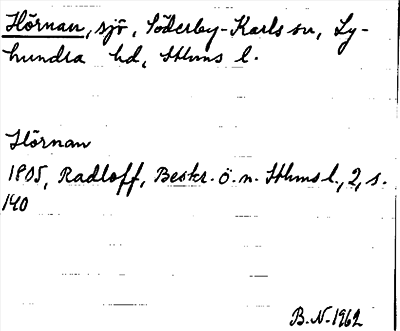 Hörnan, sjö, Söderby-Karls sn, Ly-
hundra hd, Sthms l.
Hörnan
1805, Radloff, Beskr. ö. n. Sthms l., 2, s.
140
B.N. 1962